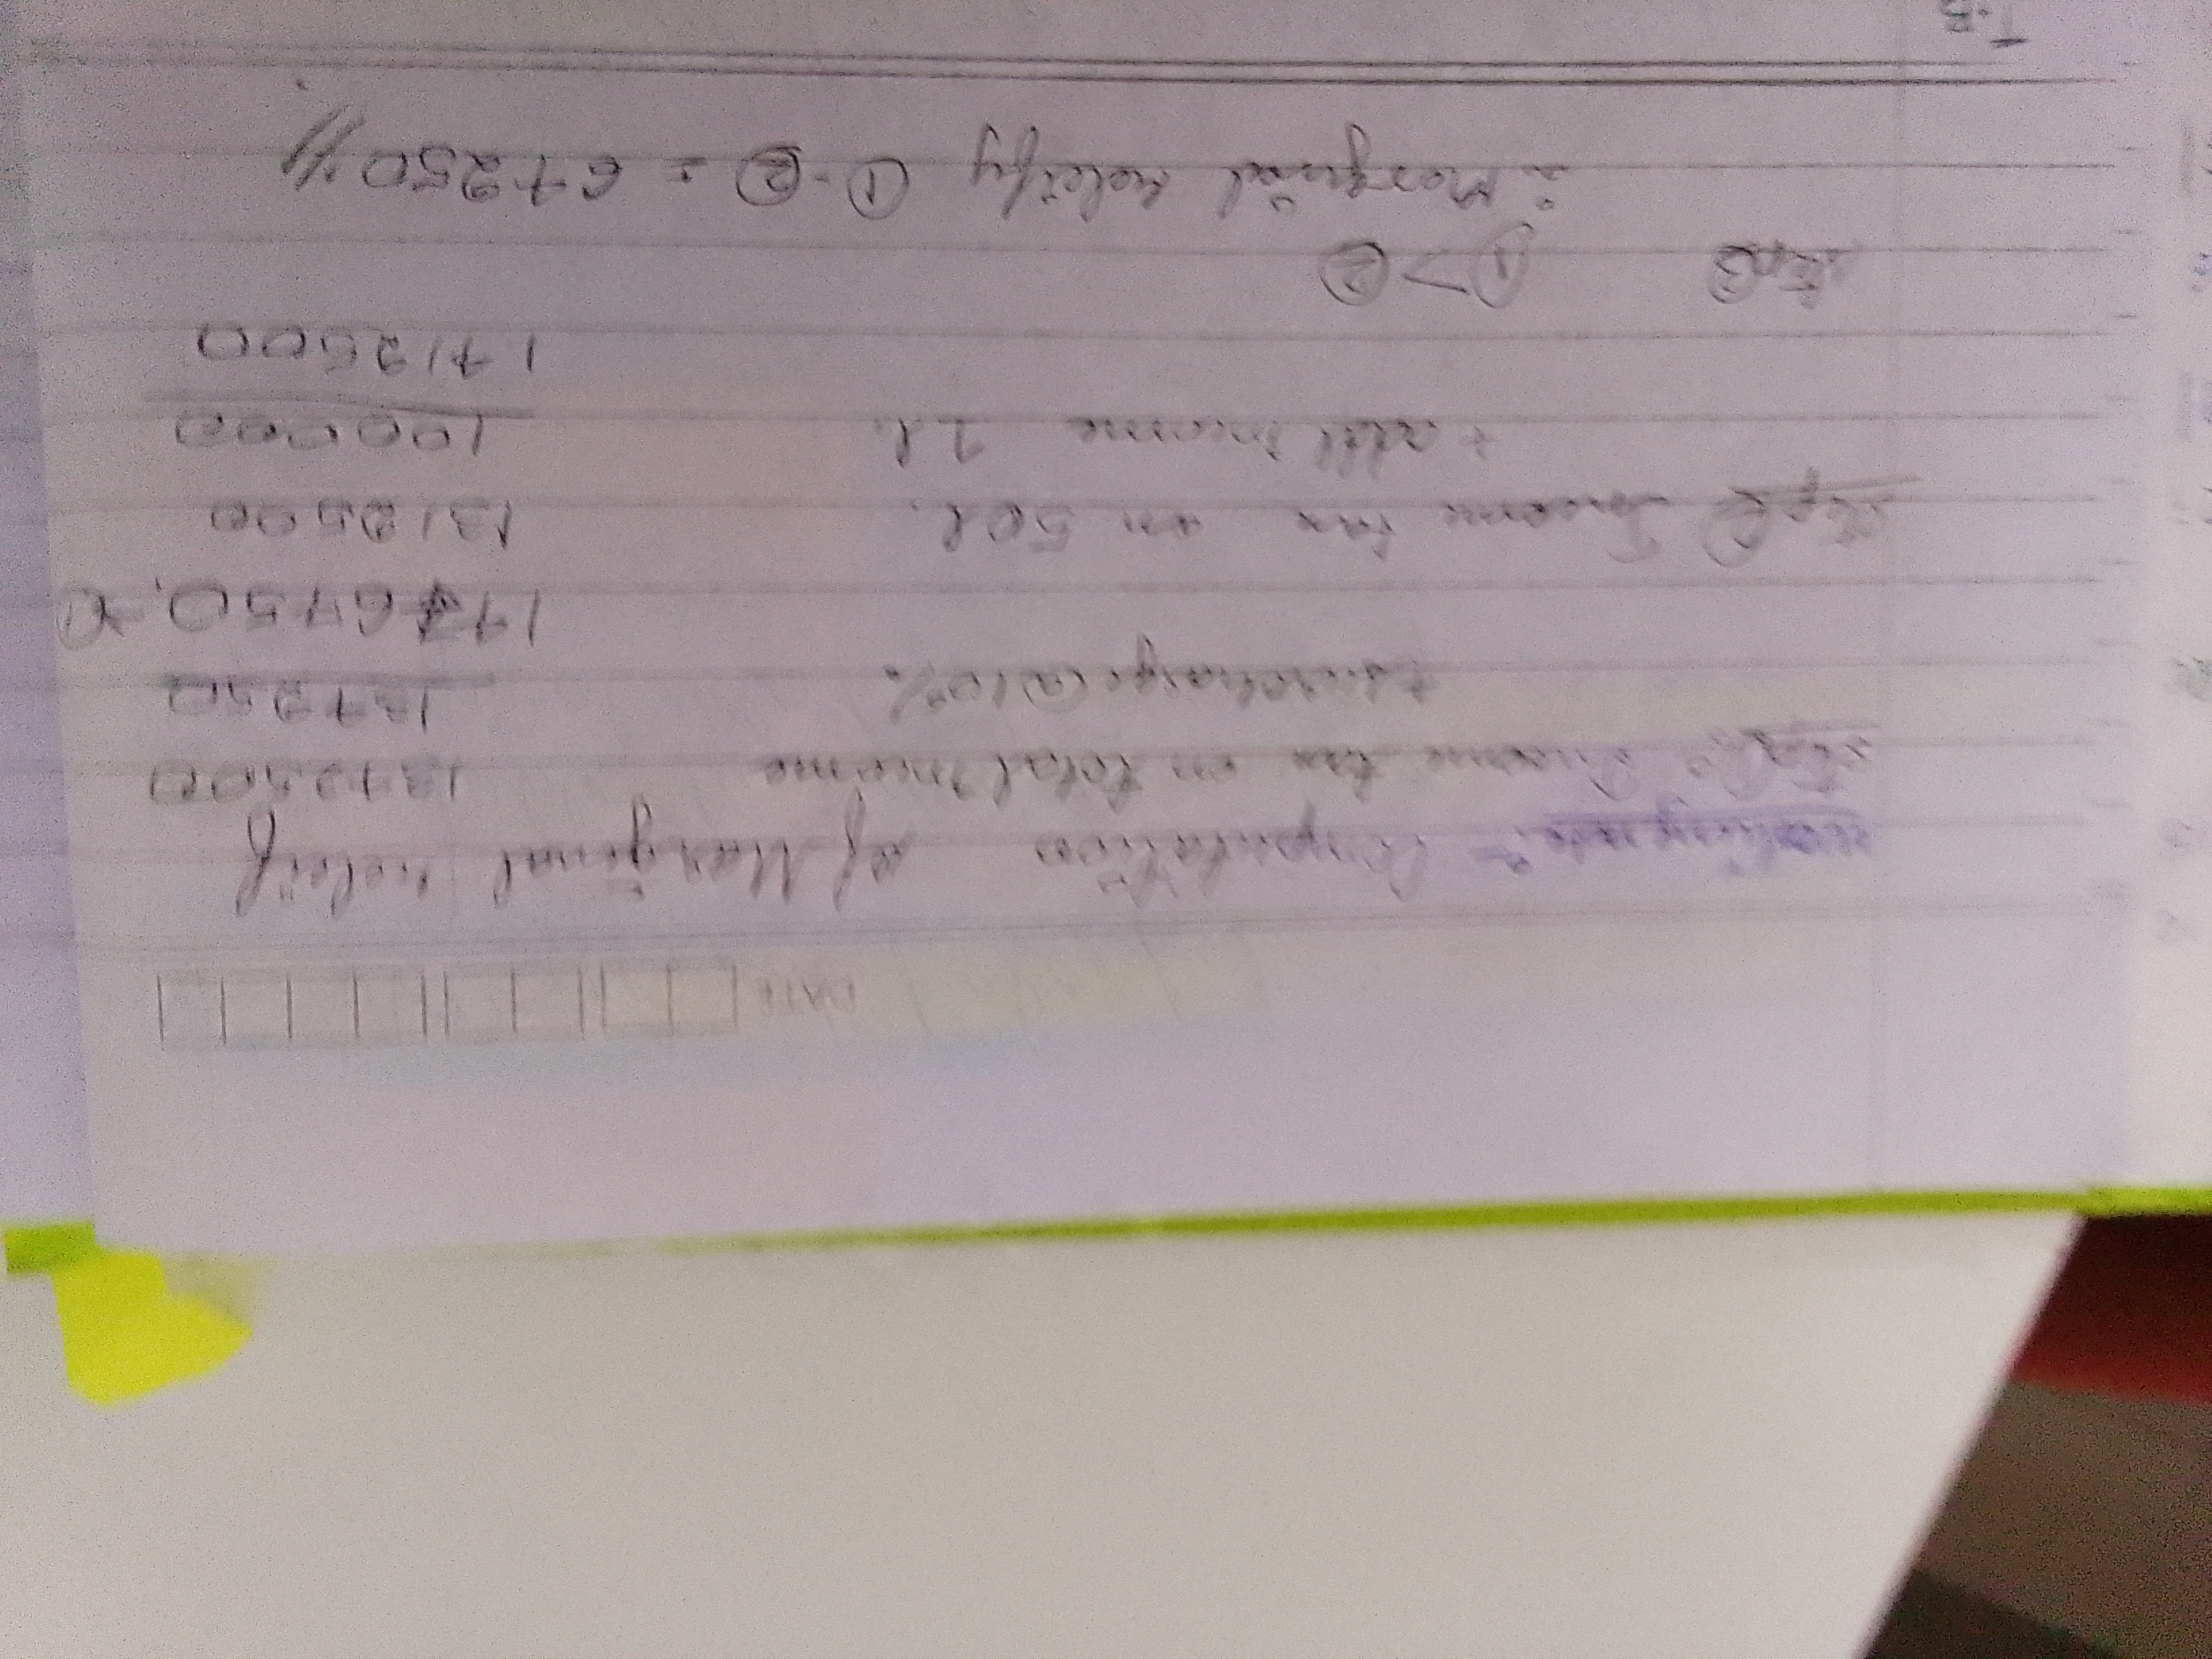 DATE
working note:- Computation of Marginal releif
Step 1: Income tax on total Income 1342500
+ surcharge @ 10% 134250
1476750. → ①
Step ② Income tax on 50L. 1312500
+ addl Income 1L 100000
1412500
Step 3 ① > ②
∴ Marginal releify ① - ② = 64250 //
T.B